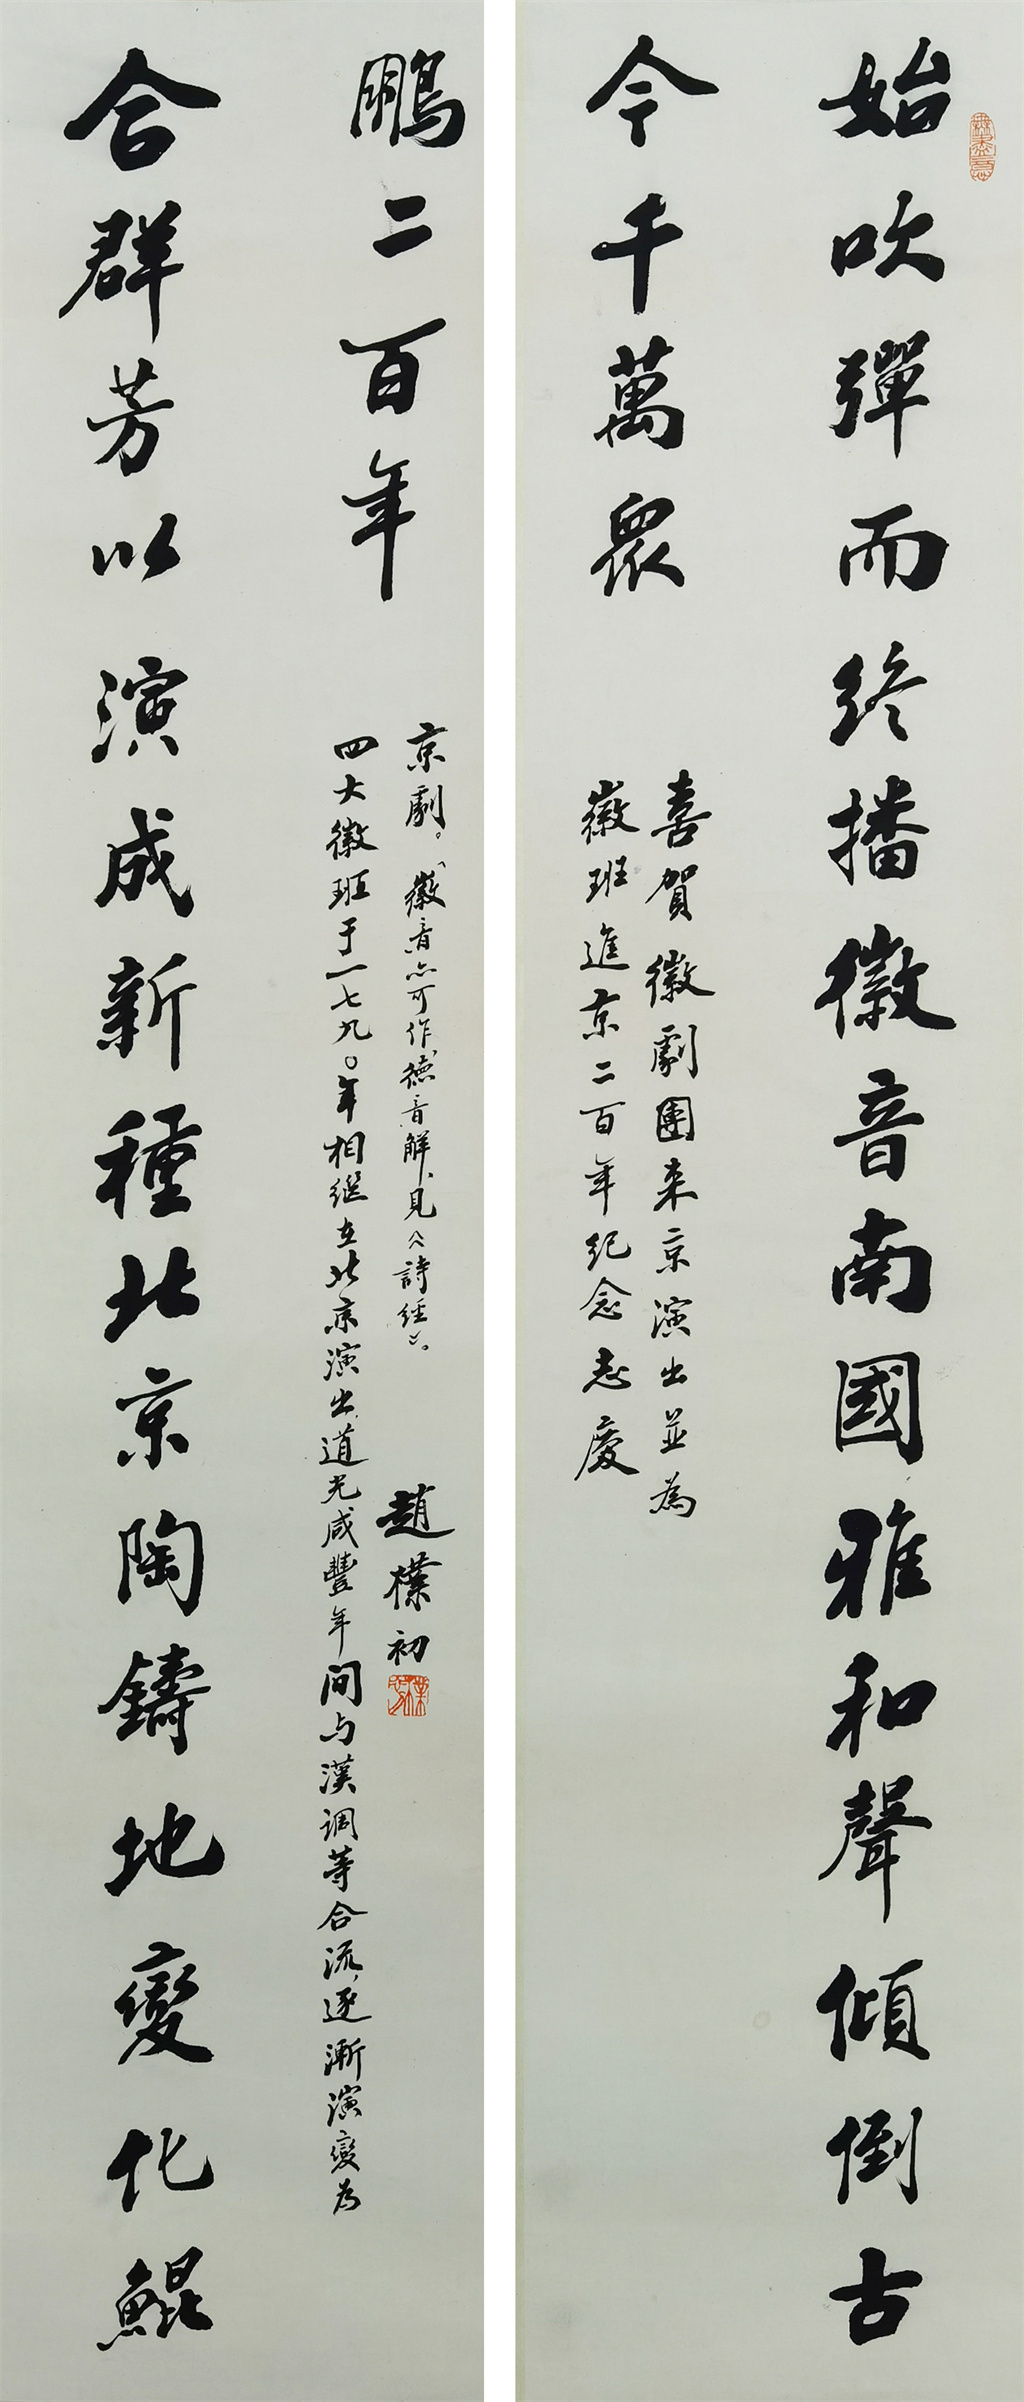 始吹彈而終播徽音南國雅和聲傾倒古
今千萬衆
喜賀徽劇團来京演出並為
徽班進京二百年紀念志慶
合群芳以演成新種北京陶鑄地變化鯤
鵬二百年
四大徽班于一七九〇年相继在北京演出,道光咸豐年间与漢調等合流,逐漸演變为
京劇。“徽音”亦可作“德音”解,見《詩經》。
趙樸初
樸初